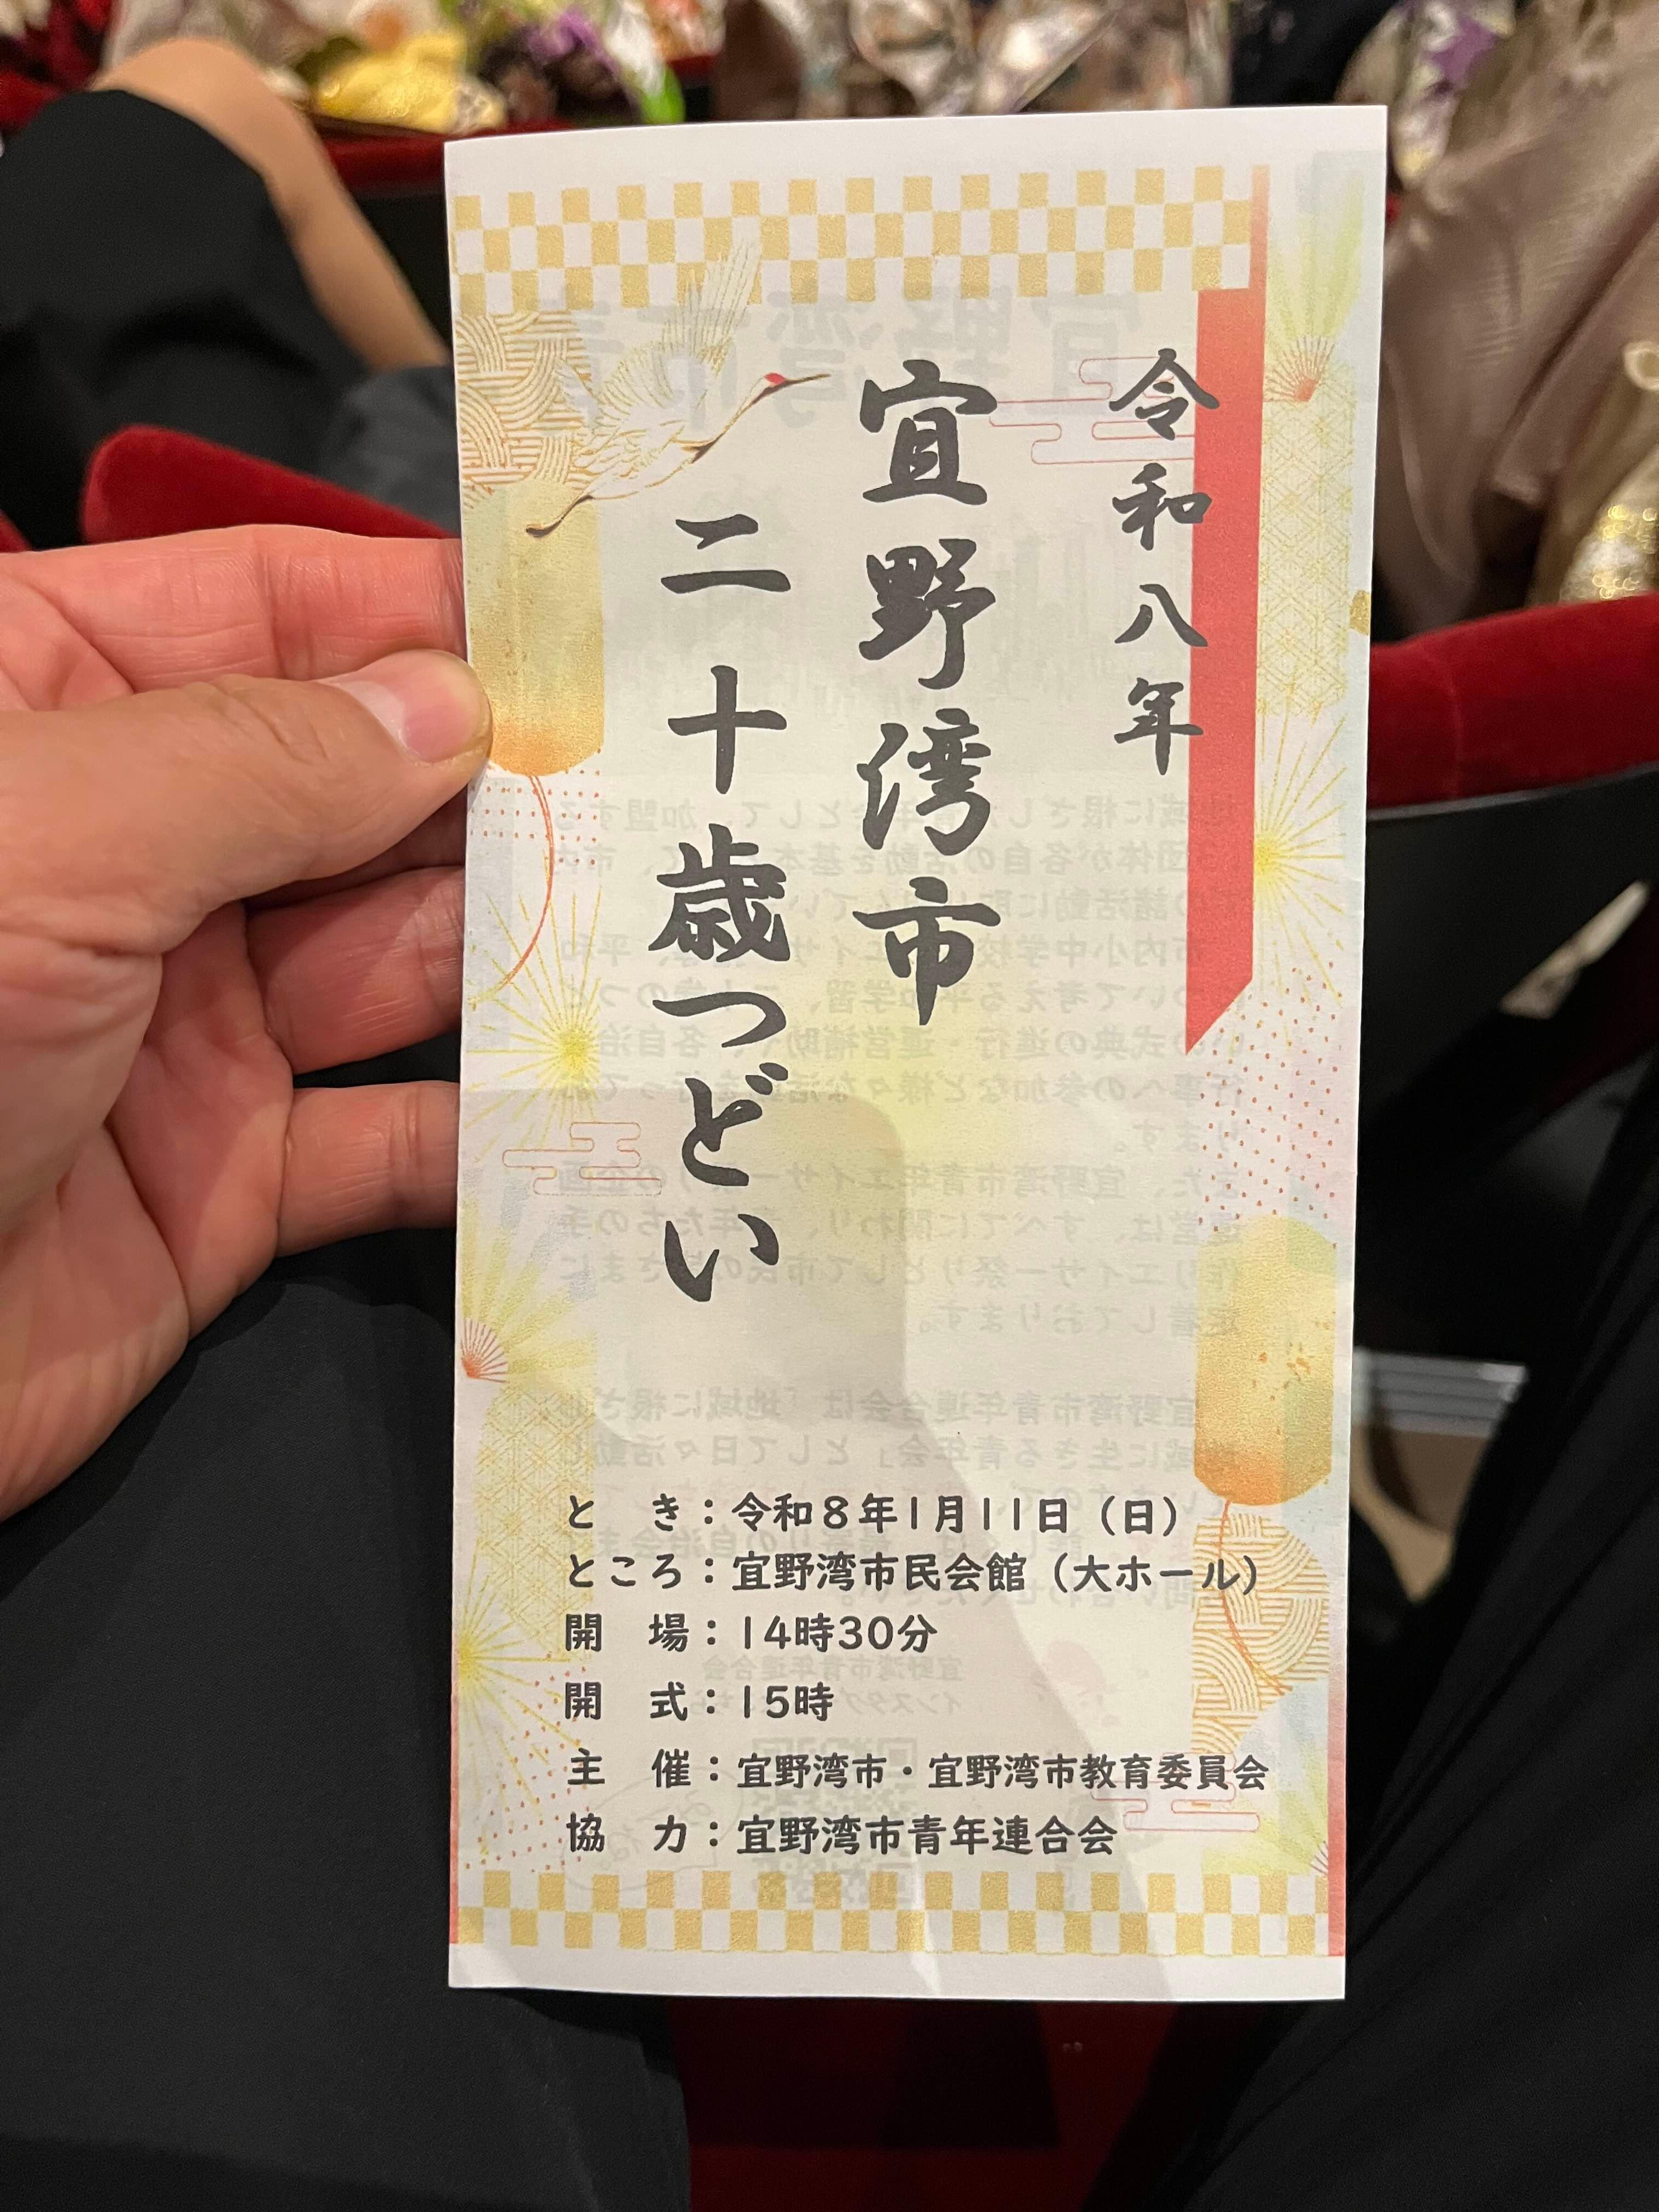 令和八年
宜野湾市
二十歳つどい
と　き：令和８年１月１１日（日）
ところ：宜野湾市民会館（大ホール）
開　場：１４時３０分
開　式：１５時
主　催：宜野湾市・宜野湾市教育委員会
協　力：宜野湾市青年連合会